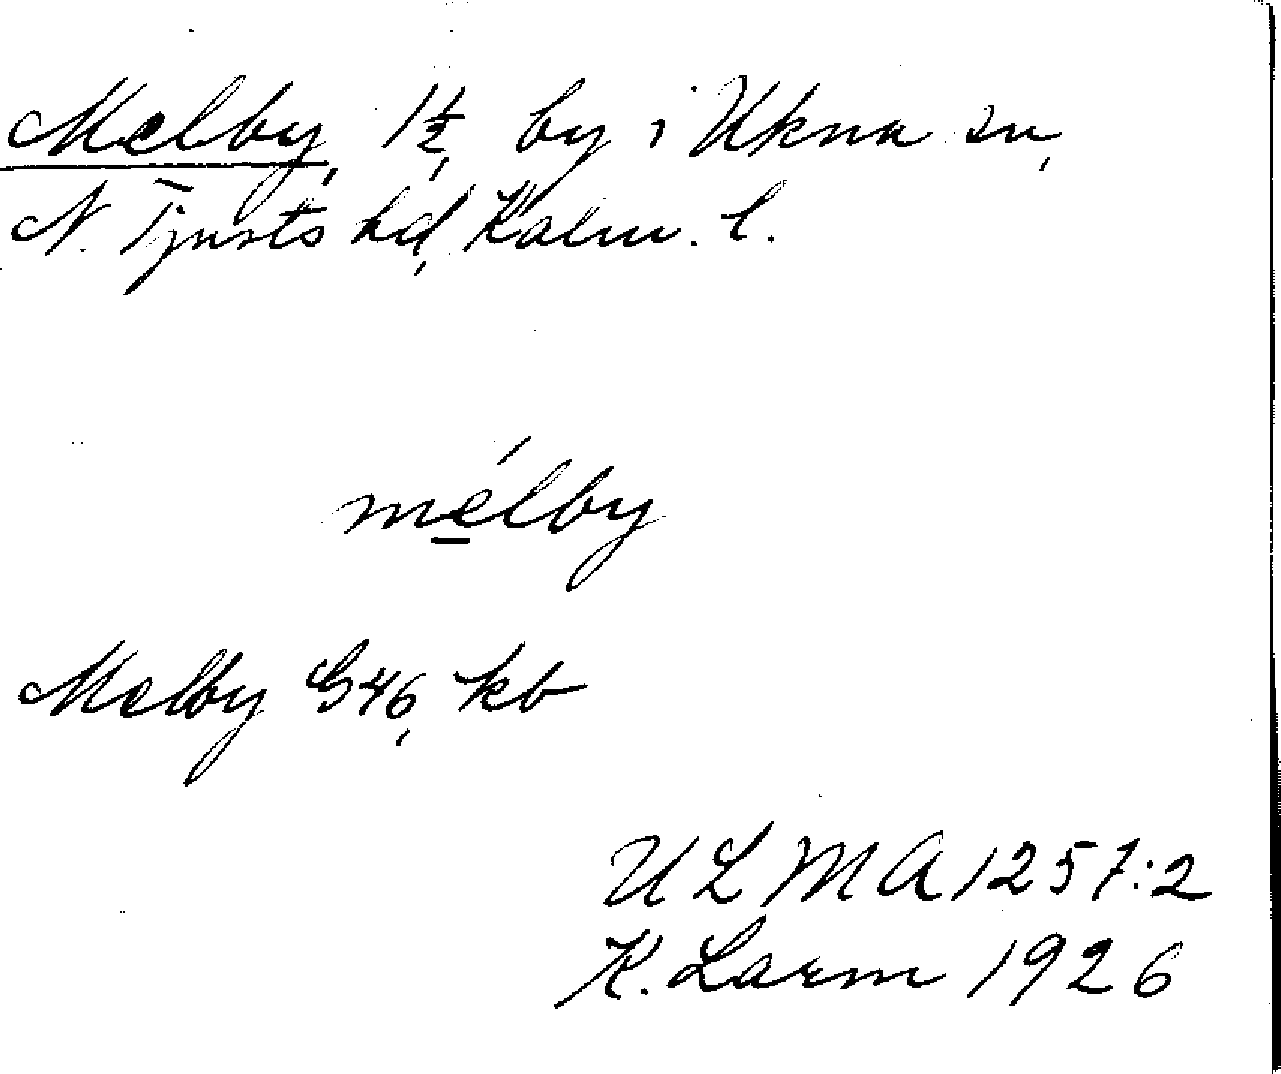 Melby, 1½, by i Ukna sn,
N. Tjusts hd, Kalm. l.
mélby
Melby G46, kb
ULMA 1257:2
K. Larm 1926